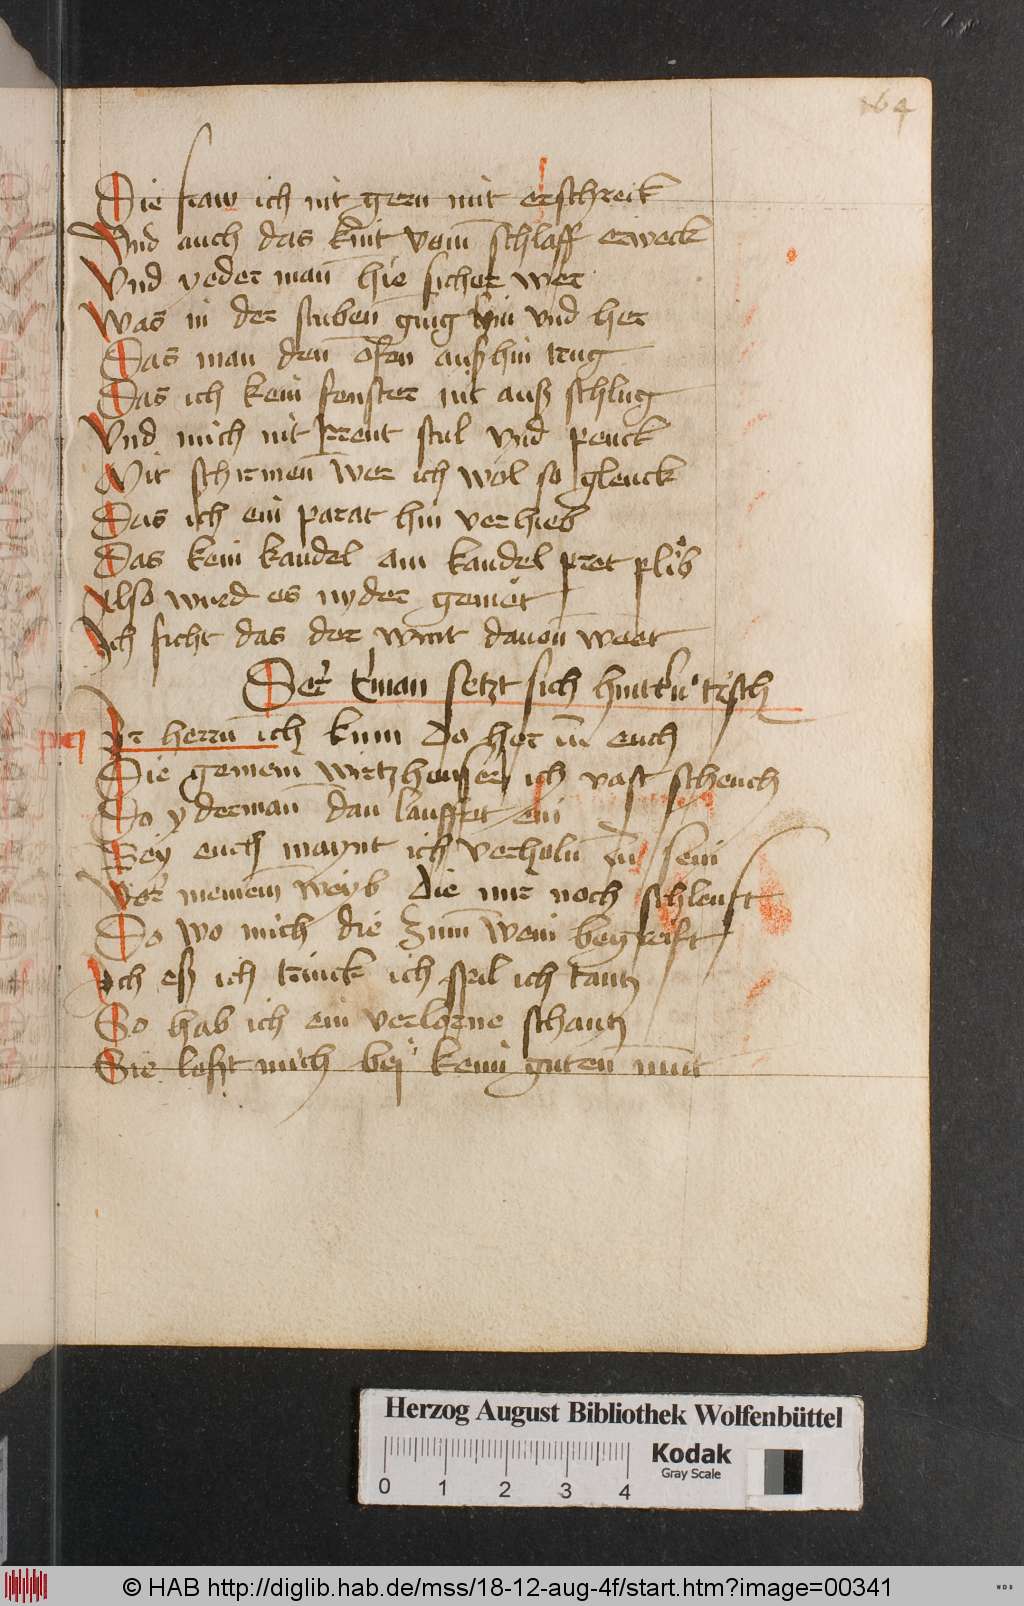 164
Die fraw ich nit gern mit erschreik
Vnd auch das kint vom schlaff erweck
Vnd yeder man hie sicher wer
Was in der stuben ging hin vnd her
Das man den ofen auß hin trug
Das ich kein fenster nit auß schlug
Vnd mich nit irrent stul vnd penck
Mit schirmen wer ich wol so glenck
Das ich ein parat hin verhieb
Das kein kandel am kandel pret plib
Also wurd es nyder gemet
Ich sicht das der wint dauon weet
Der man setzt sich
Ir herrn ich kum do her in euch
Die gemein wirtzheuser ich vast scheuch
Do yderman dan lauffet ein
Bey euch maynt ich verholn zu sein
Vor meinem weyb die mir noch schleuft
Do wo mich die zum wein begreift
Och eß ich trinck ich spil ich tantz
So hab ich ein verlorne schantz
Sie lest mich bei keim guten mut
Herzog August Bibliothek Wolfenbüttel
Kodak
Gray Scale
0 1 2 3 4
© HAB http://diglib.hab.de/mss/18-12-aug-4f/start.htm?image=00341